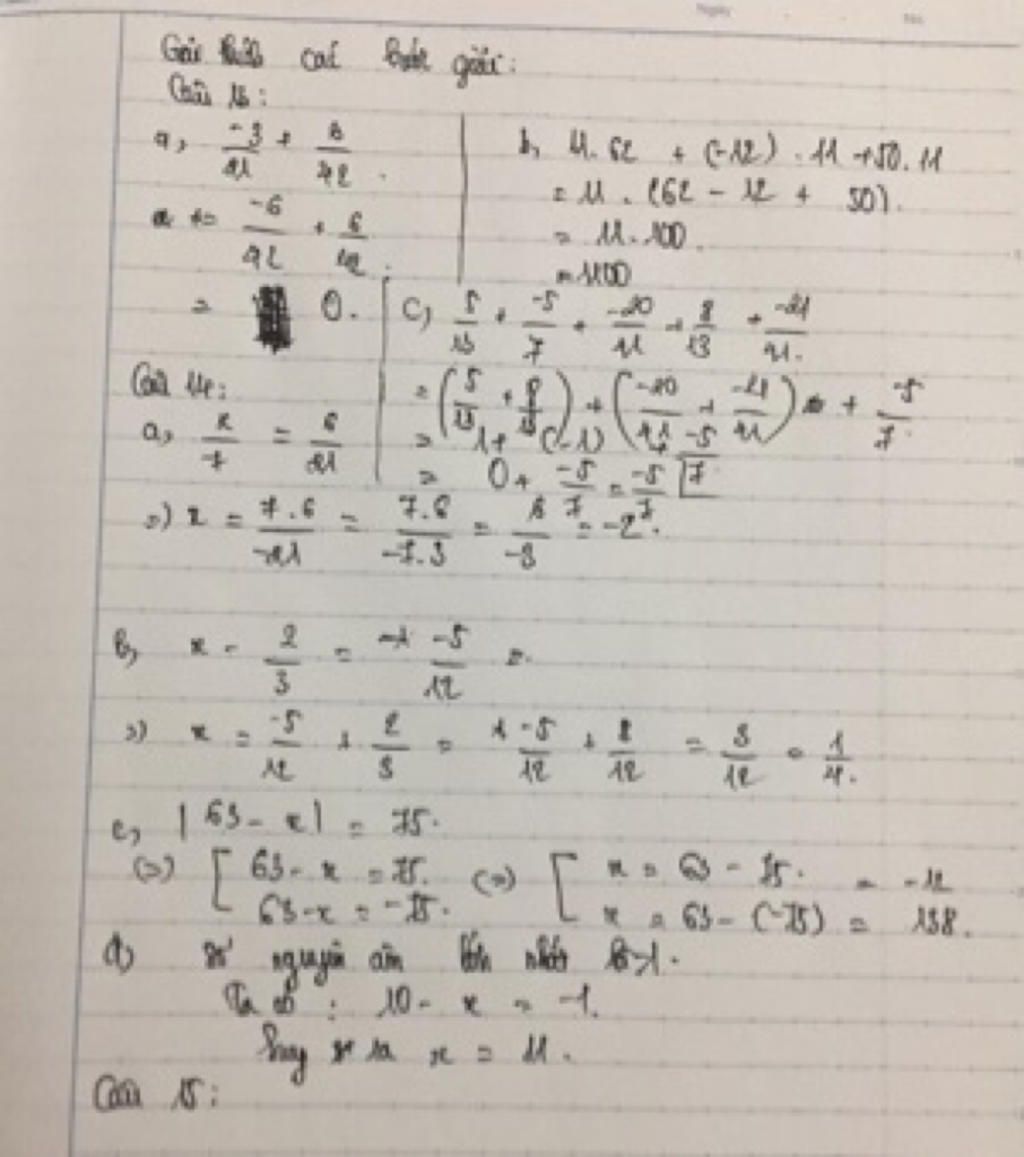 Giải thích các bước giải:
Câu 13:
a, -3/21 + 6/42.
= -6/42 + 6/42.
= 0.
b, 11.62 + (-12).11 + 50.11
= 11.(62 - 12 + 50).
= 11.100.
= 1100
c, 5/13 + -5/7 + -20/41 + 8/13 + -21/41.
= (5/13 + 8/13) + (-20/41 + -21/41) + -5/7.
= 1 + (-1) + -5/7
= 0 + -5/7 = -5/7
Câu 14:
a, x/7 = 6/21
=) x = 7.6/-21 = 7.6/-7.3 = 6/-3 = -2.
b, x - 2/3 = -5/12 =.
=) x = -5/12 + 2/3 = -5/12 + 8/12 = 3/12 = 1/4.
c, |63 - x| = 75.
(=) [ 63 - x = 75. (=) [ x = 63 - 75. = -12
63 - x = -75. x = 63 - (-75) = 138.
d) số nguyên âm lớn nhất là -1.
Ta có : 10 - x = -1.
Suy ra x = 11.
Câu 15: